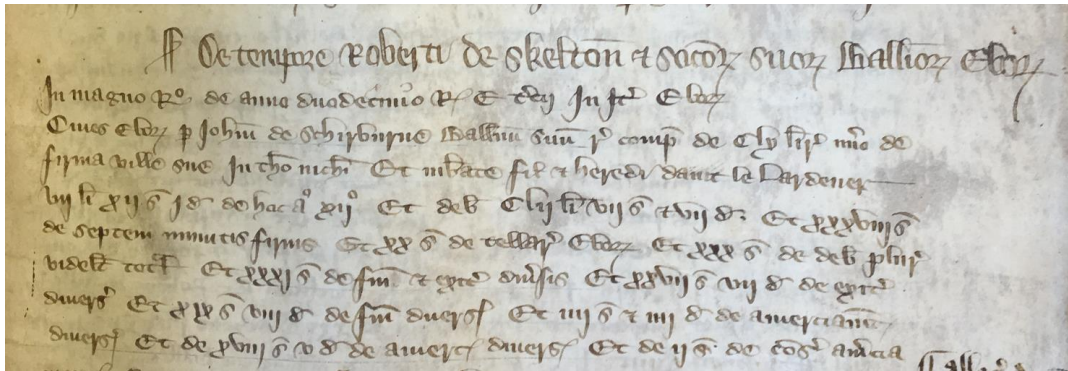 De tempore Roberti de Skelton & socior suor Ballior Ebor
In magno Ro de anno duodecimo R E tercij In Itr Ebor
Cives Ebor p Johm de Schirburne Ballim suu r comp de Clx libr nuo de
firma ville sue In tho nichi Et mbate fil & heredi davit le Lardener
vij li xij s j d de hoc ao xijo Et deb Clij li vij s & vij d Et xxxviij s
de septem minutis firmis Et xx s de tellar Ebor Et xxx s de deb plur
videlt totl Et xxxj s de fin & extr divsis Et xxvij s vij d de extr
divers Et xix s viij d de fin divers Et iiij s & iiij d de amerciament
divers Et de xviij s v d de amerc divers Et de ij s de cos amcia